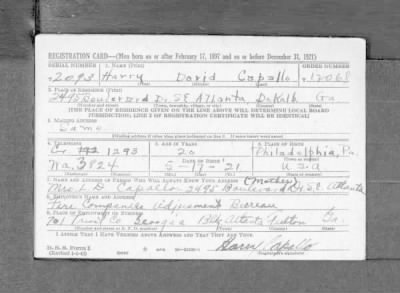 REGISTRATION CARD—(Men born on or after February 17, 1897 and on or before December 31, 1921)
SERIAL NUMBER 1. NAME (Print) ORDER NUMBER
2093 Harry David Capallo 12068
2. PLACE OF RESIDENCE (Print)
2495 Boulevard D. SE Atlanta, DeKalb Ga
[THE PLACE OF RESIDENCE GIVEN ON THE LINE ABOVE WILL DETERMINE LOCAL BOARD
JURISDICTION; LINE 2 OF REGISTRATION CERTIFICATE WILL BE IDENTICAL]
3. MAILING ADDRESS
Same
[Mailing address if other than place indicated on line 2. If same insert word same]
4. TELEPHONE 5. AGE IN YEARS 6. PLACE OF BIRTH
1293 20 Philadelphia, Pa.
DATE OF BIRTH
Wa. 3824 5-17-21 U.S.A
7. NAME AND ADDRESS OF PERSON WHO WILL ALWAYS KNOW YOUR ADDRESS (Mother)
Mrs. L. D. Capallo 2495 Boulevard Dr S.E. Atlanta
8. EMPLOYER'S NAME AND ADDRESS
Fire Companies Adjusment Bureau
9. PLACE OF EMPLOYMENT OR BUSINESS
Georgia Atlanta Fulton Ga.
I AFFIRM THAT I HAVE VERIFIED ABOVE ANSWERS AND THAT THEY ARE TRUE.
D. S. S. FORM 1
(Revised 1-1-42)
Capallo